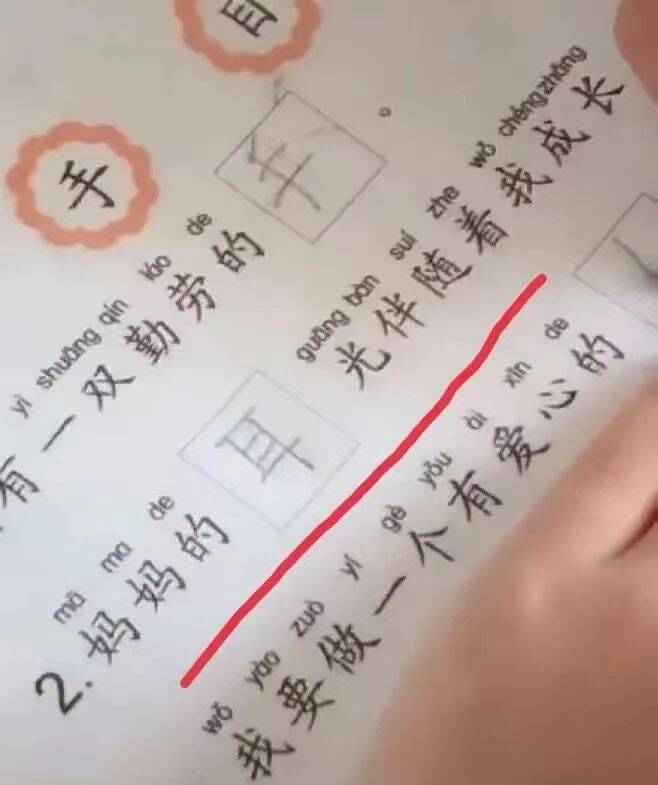 手
yì shuāng qín láo de
有一双勤劳的手。
mā ma de guāng bàn suí zhe wǒ chéng zhǎng
2. 妈妈的耳光伴随着我成长
wǒ yào zuò yí gè yǒu ài xīn de
我要做一个有爱心的